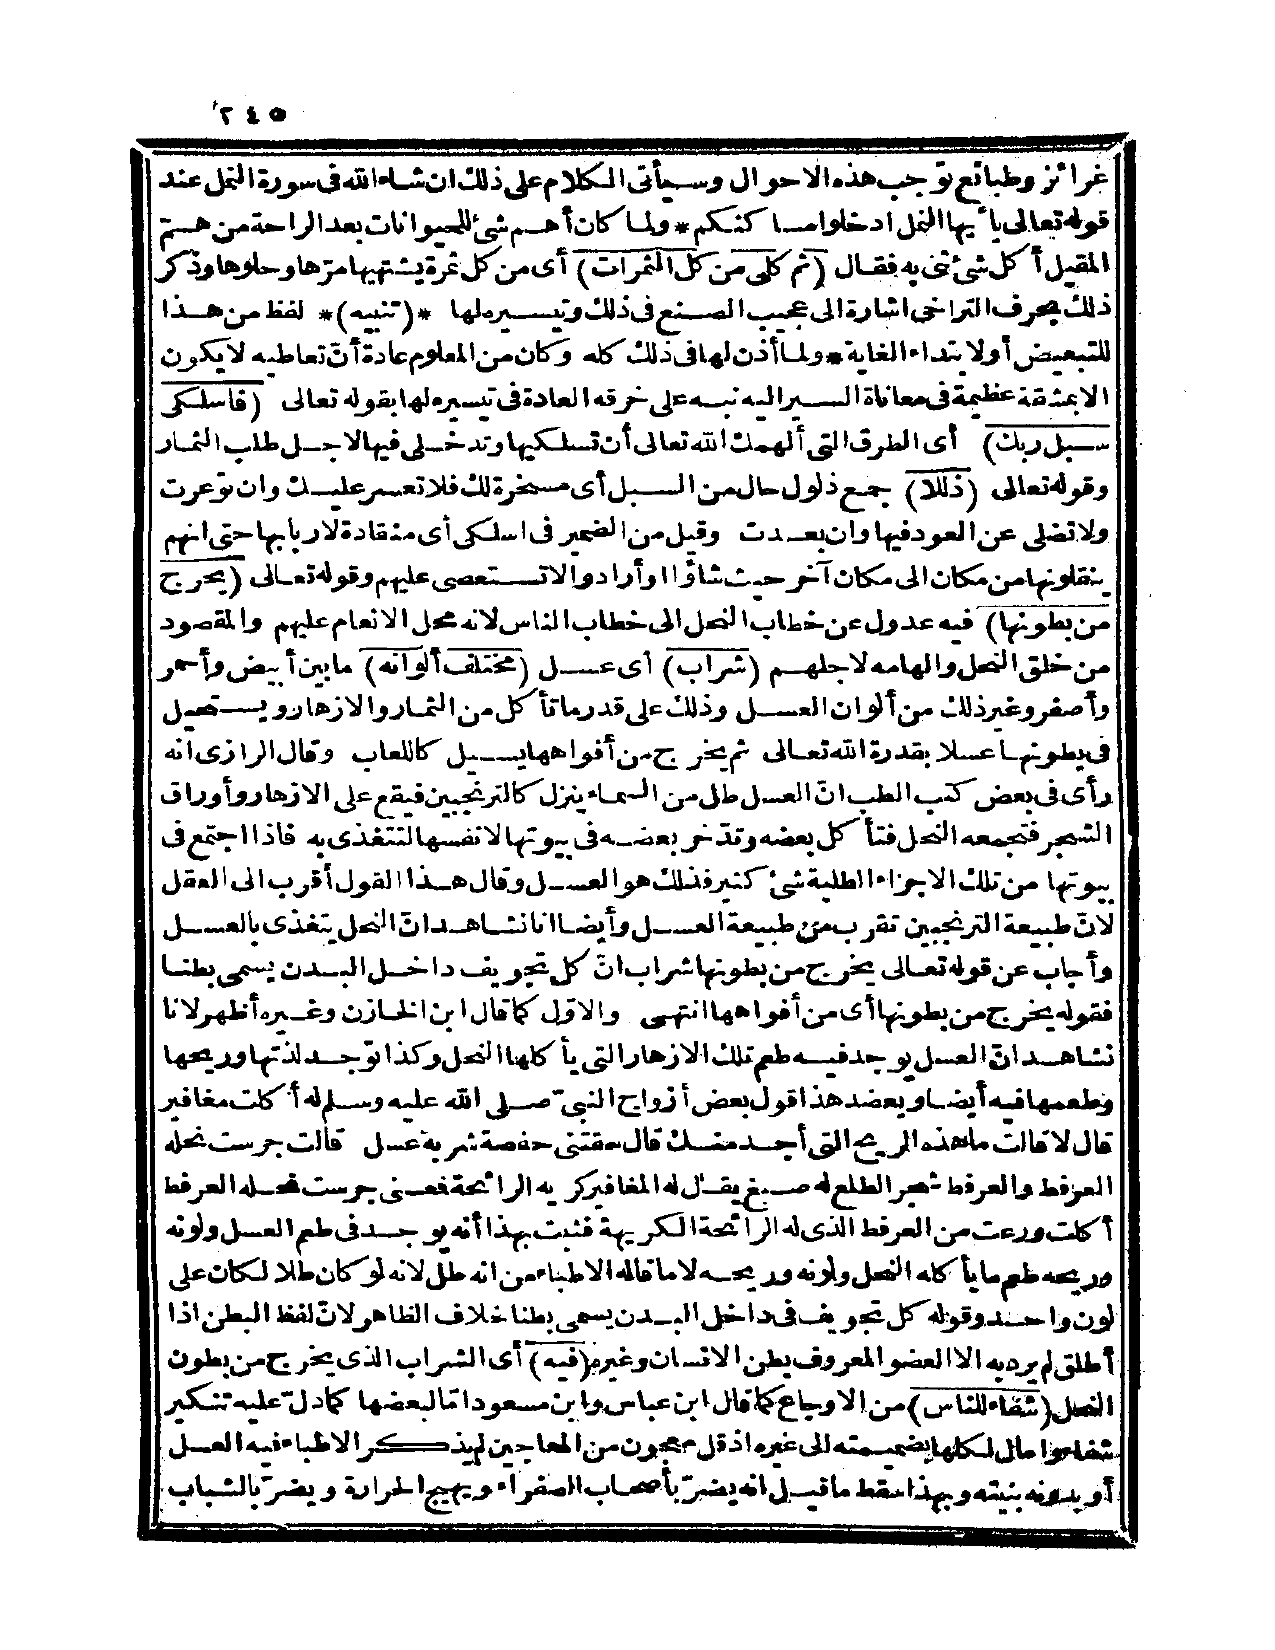 ٢٤٥
غرائز وطبائع توجب هذه الاحوال وسيأتى الكلام على ذلك ان شاء الله فى سورة النمل عند
قوله تعالى يا أيها النمل ادخلوا مساكنكم * ولما كان أهم شئ للحيوانات بعد الراحة من هم
المقيل أكل شئ ثنى به فقال (ثم كلى من كل الثمرات) أى من كل ثمرة يشتهيها مرّها وحلوها وذكر
ذلك بحرف التراخى اشارة الى عجيب الصنع فى ذلك وتيسيره لها *(تنبيه)* لفظ من هذا
للتبعيض أو لابتداء الغاية * ولما أذن لها فى ذلك كله وكان من المعلوم عادة أنّ تعاطيه لا يكون
الا بمشقة عظيمة فى معاناة السير اليه نبه على خرقه العادة فى تيسيره لها بقوله تعالى (فاسلكى
سبل ربك) أى الطرق التى ألهمك الله تعالى أن تسلكيها وتدخلى فيها لاجل طلب الثمار
وقوله تعالى (ذللا) جمع ذلول حال من السبل أى مسخرة لك فلا تعسر عليك وان توعرت
ولا تضلى عن العود فيها وان بعدت وقيل من الضمير فى اسلكى أى منقادة لاربابها حتى انهم
ينقلونها من مكان الى مكان آخر حيث شاؤا وأرادوا لا تستعصى عليهم وقوله تعالى (يخرج
من بطونها) فيه عدول عن خطاب النحل الى خطاب الناس لانه محل الانعام عليهم والمقصود
من خلق النحل والهامه لاجلهم (شراب) أى عسل (مختلف ألوانه) ما بين أبيض وأحمر
وأصفر وغير ذلك من ألوان العسل وذلك على قدر ما تأكل من الثمار والازهار ويستحيل
فى بطونها عسلا بقدرة الله تعالى ثم يخرج من أفواهها يسيل كاللعاب وقال الرازى انه
رأى فى بعض كتب الطب انّ العسل طل من السماء ينزل كالترنجبين فيقع على الازهار وأوراق
الشجر فتجمعه النحل فتأكل بعضه وتدّخر بعضه فى بيوتها لانفسها لتتغذى به فاذا اجتمع فى
بيوتها من تلك الاجزاء الطلية شئ كثير فذلك هو العسل وقال هذا القول أقرب الى العقل
لانّ طبيعة الترنجبين تقرب من طبيعة العسل وأيضا انا نشاهد انّ النحل يتغذى بالعسل
وأجاب عن قوله تعالى يخرج من بطونها شراب انّ كل تجويف داخل البدن يسمى بطنا
فقوله يخرج من بطونها أى من أفواهها انتهى والاوّل كما قال ابن الخازن وغيره أظهر لانا
نشاهد انّ العسل يوجد فيه طعم تلك الازهار التى يأكلها النحل وكذا توجد لذتها وريحها
وطعمها فيه أيضا ويعضد هذا قول بعض أزواج النبىّ صلى الله عليه وسلم له أكلت مغافير
قال لا قالت ما هذه الريح التى أجد منك قال سقتنى حفصة شربة عسل قالت جرست نحله
العرفط والعرفط شجر الطلح له صمغ يقال له المغافير كريه الرائحة فمعنى جرست نحله العرفط
أكلت ورعت من العرفط الذى له الرائحة الكريهة فثبت بهذا أنه يوجد فى طعم العسل ولونه
وريحه طعم ما يأكله النحل ولونه وريحه لا ما قاله الاطباء من انه طل لانه لو كان طلا لكان على
لون واحد وقوله كل تجويف فى داخل البدن يسمى بطنا خلاف الظاهر لانّ لفظ البطن اذا
أطلق لم يرد به الا العضو المعروف بطن الانسان وغيره (فيه) أى الشراب الذى يخرج من بطون
النحل (شفاء للناس) من الاوجاع كما قال ابن عباس وابن مسعود امّا لبعضها كما دل عليه تنكير
شفاء وامال لكلها بضميمته الى غيره اذ قل معجون من المعاجين لم يذكر الاطباء فيه العسل
أو بدونه بنيته وبهذا سقط ما قيل انه يضرّ بأصحاب الصفراء ويهيج الحرارة ويضرّ بالشباب